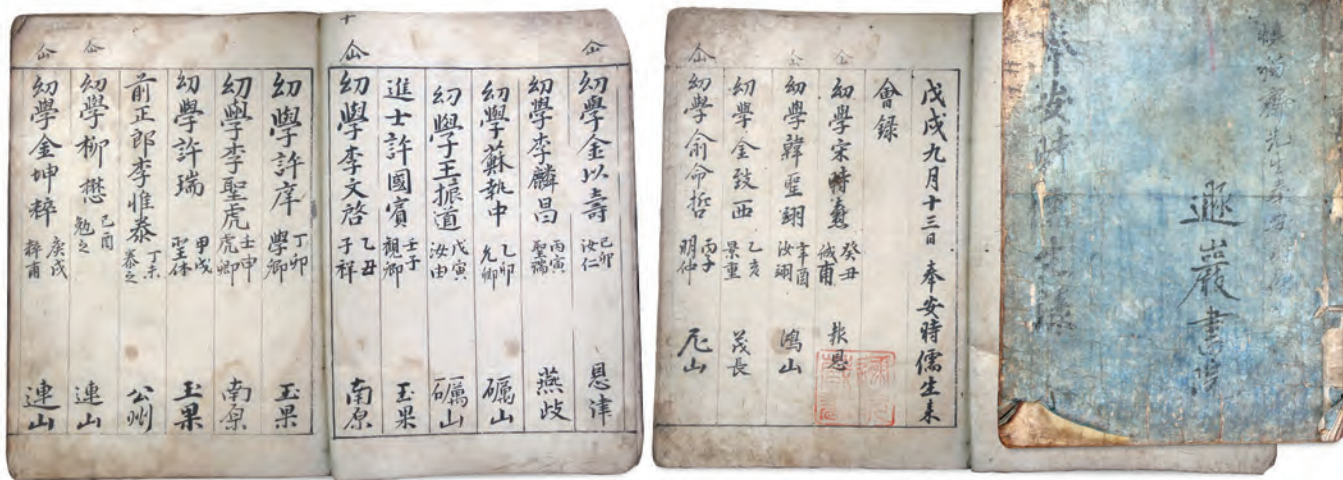 遯巖書院
戊戌九月十三日 奉安時儒生來
會錄
仚 幼學宋時燾 癸丑 誠甫 報恩
仚 幼學韓聖翊 辛酉 汝翊 鴻山
幼學金致西 乙亥 景重 茂長
仚 幼學俞命哲 丙子 明仲 尼山
仚 幼學金以壽 己卯 汝仁 恩津
幼學李麟昌 丙寅 聖瑞 燕歧
幼學蘇執中 乙卯 允卿 礪山
幼學王振道 戊寅 汝由 礪山
進士許國賓 壬子 觀卿 玉果
十
仚 幼學李文啓 乙丑 子祥 南原
幼學許庠 丁卯 學卿 玉果
幼學李聖虎 壬申 虎卿 南原
幼學許瑞 甲戌 聖休 玉果
前正郎李惟泰 丁未 泰之 公州
仚 幼學柳懋 己酉 勉之 連山
仚 幼學金坤粹 庚戌 粹甫 連山